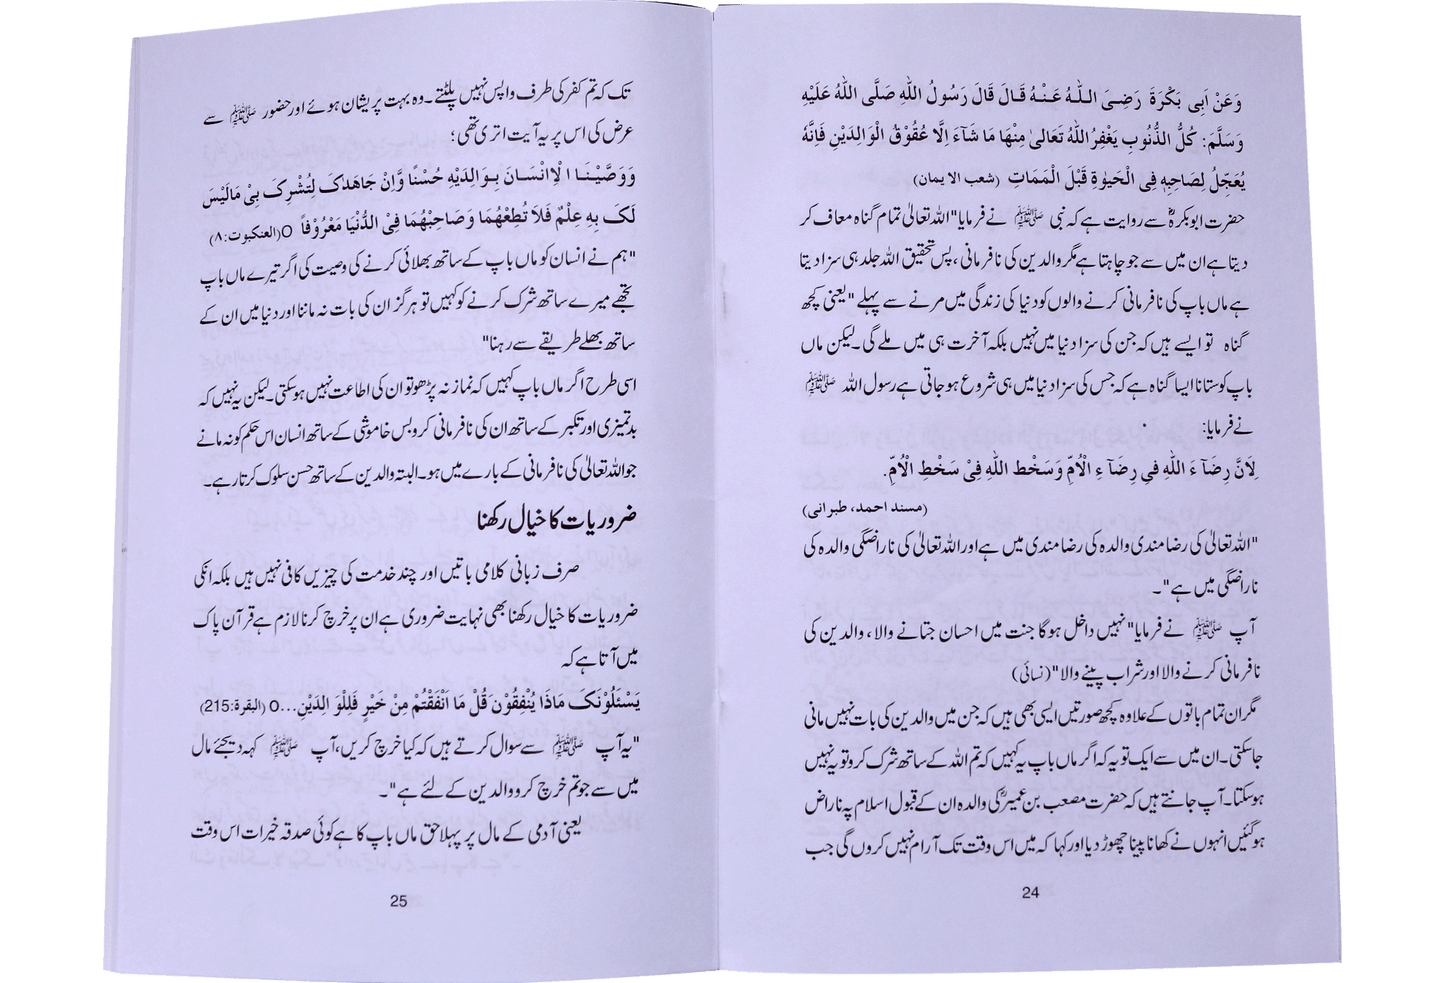 وَعَنْ اَبِی بَکْرَةَ رَضِیَ اللّٰهُ عَنْهُ قَالَ قَالَ رَسُولُ اللّٰهِ صَلَّی اللّٰهُ عَلَیْهِ
وَسَلَّمَ: کُلُّ الذُّنُوبِ یَغْفِرُ اللّٰهُ تَعَالیٰ مِنْهَا مَا شَآءَ اِلَّا عُقُوْقُ الْوَالِدَیْنِ فَاِنَّهُ
یُعَجِّلُ لِصَاحِبِهٖ فِی الْحَیٰوةِ قَبْلَ الْمَمَاتِ (شعب الایمان)
حضرت ابوبکرہؓ سے روایت ہے کہ نبی ﷺ نے فرمایا"اللہ تعالیٰ تمام گناہ معاف کر
دیتا ہے ان میں سے جو چاہتا ہے مگر والدین کی نافرمانی، پس تحقیق اللہ جلد ہی سزا دیتا
ہے ماں باپ کی نافرمانی کرنے والوں کو دنیا کی زندگی میں مرنے سے پہلے "یعنی کچھ
گناہ تو ایسے ہیں کہ جن کی سزا دنیا میں نہیں بلکہ آخرت ہی میں ملے گی۔ لیکن ماں
باپ کو ستانا ایسا گناہ ہے کہ جس کی سزا دنیا میں ہی شروع ہو جاتی ہے رسول اللہ ﷺ
نے فرمایا:
لِاَنَّ رِضَآءَ اللّٰهِ فِی رِضَآءِ الْاُمِّ وَسَخْط اللّٰهِ فِیْ سَخْطِ الْاُمِّ.
(مسند احمد، طبرانی)
"اللہ تعالیٰ کی رضا مندی والدہ کی رضا مندی میں ہے اور اللہ تعالیٰ کی ناراضگی والدہ کی
ناراضگی میں ہے"۔
آپ ﷺ نے فرمایا"نہیں داخل ہوگا جنت میں احسان جتانے والا، والدین کی
نافرمانی کرنے والا اور شراب پینے والا"(نسائی)
مگر ان تمام باتوں کے علاوہ کچھ صورتیں ایسی بھی ہیں کہ جن میں والدین کی بات نہیں مانی
جاسکتی۔ ان میں سے ایک تو یہ کہ اگر ماں باپ یہ کہیں کہ تم اللہ کے ساتھ شرک کرو تو یہ نہیں
ہوسکتا۔ آپ جانتے ہیں کہ حضرت مصعب بن عمیرؓ کی والدہ ان کے قبول اسلام پہ ناراض
ہوگئیں انہوں نے کھانا پینا چھوڑ دیا اور کہا کہ میں اس وقت تک آرام نہیں کروں گی جب
24
تک کہ تم کفر کی طرف واپس نہیں پلٹتے۔ وہ بہت پریشان ہوئے اور حضور ﷺ سے
عرض کی اس پر یہ آیت اتری تھی؛
وَوَصَّیْنَا الْاِنْسَانَ بِوَالِدَیْهِ حُسْنًا وَّاِنْ جَاهَدٰکَ لِتُشْرِکَ بِیْ مَالَیْسَ
لَکَ بِهٖ عِلْمٌ فَلَا تُطِعْهُمَا وَصَاحِبْهُمَا فِیْ الدُّنْیَا مَعْرُوْفاً O(العنکبوت:۸)
"ہم نے انسان کو ماں باپ کے ساتھ بھلائی کرنے کی وصیت کی اگر تیرے ماں باپ
تجھے میرے ساتھ شرک کرنے کو کہیں تو ہر گز ان کی بات نہ ماننا اور دنیا میں ان کے
ساتھ بھلے طریقے سے رہنا"
اسی طرح اگر ماں باپ کہیں کہ نماز نہ پڑھو تو ان کی اطاعت نہیں ہوسکتی۔ لیکن یہ نہیں کہ
بدتمیزی اور تکبر کے ساتھ ان کی نافرمانی کرو بس خاموشی کے ساتھ انسان اس حکم کو نہ مانے
جو اللہ تعالیٰ کی نافرمانی کے بارے میں ہو۔ البتہ والدین کے ساتھ حسن سلوک کرتا رہے۔
ضروریات کا خیال رکھنا
صرف زبانی کلامی باتیں اور چند خدمت کی چیزیں کافی نہیں ہیں بلکہ انکی
ضروریات کا خیال رکھنا بھی نہایت ضروری ہے ان پر خرچ کرنا لازم ہے قرآن پاک
میں آتا ہے کہ
یَسْئَلُوْنَکَ مَاذَا یُنْفِقُوْنَ قُلْ مَا اَنْفَقْتُمْ مِنْ خَیْرٍ فَلِلْوَالِدَیْنِ...O (البقرة:215)
"یہ آپ ﷺ سے سوال کرتے ہیں کہ کیا خرچ کریں، آپ ﷺ کہہ دیجئے مال
میں سے جو تم خرچ کرو والدین کے لئے ہے"۔
یعنی آدمی کے مال پر پہلا حق ماں باپ کا ہے کوئی صدقہ خیرات اس وقت
25